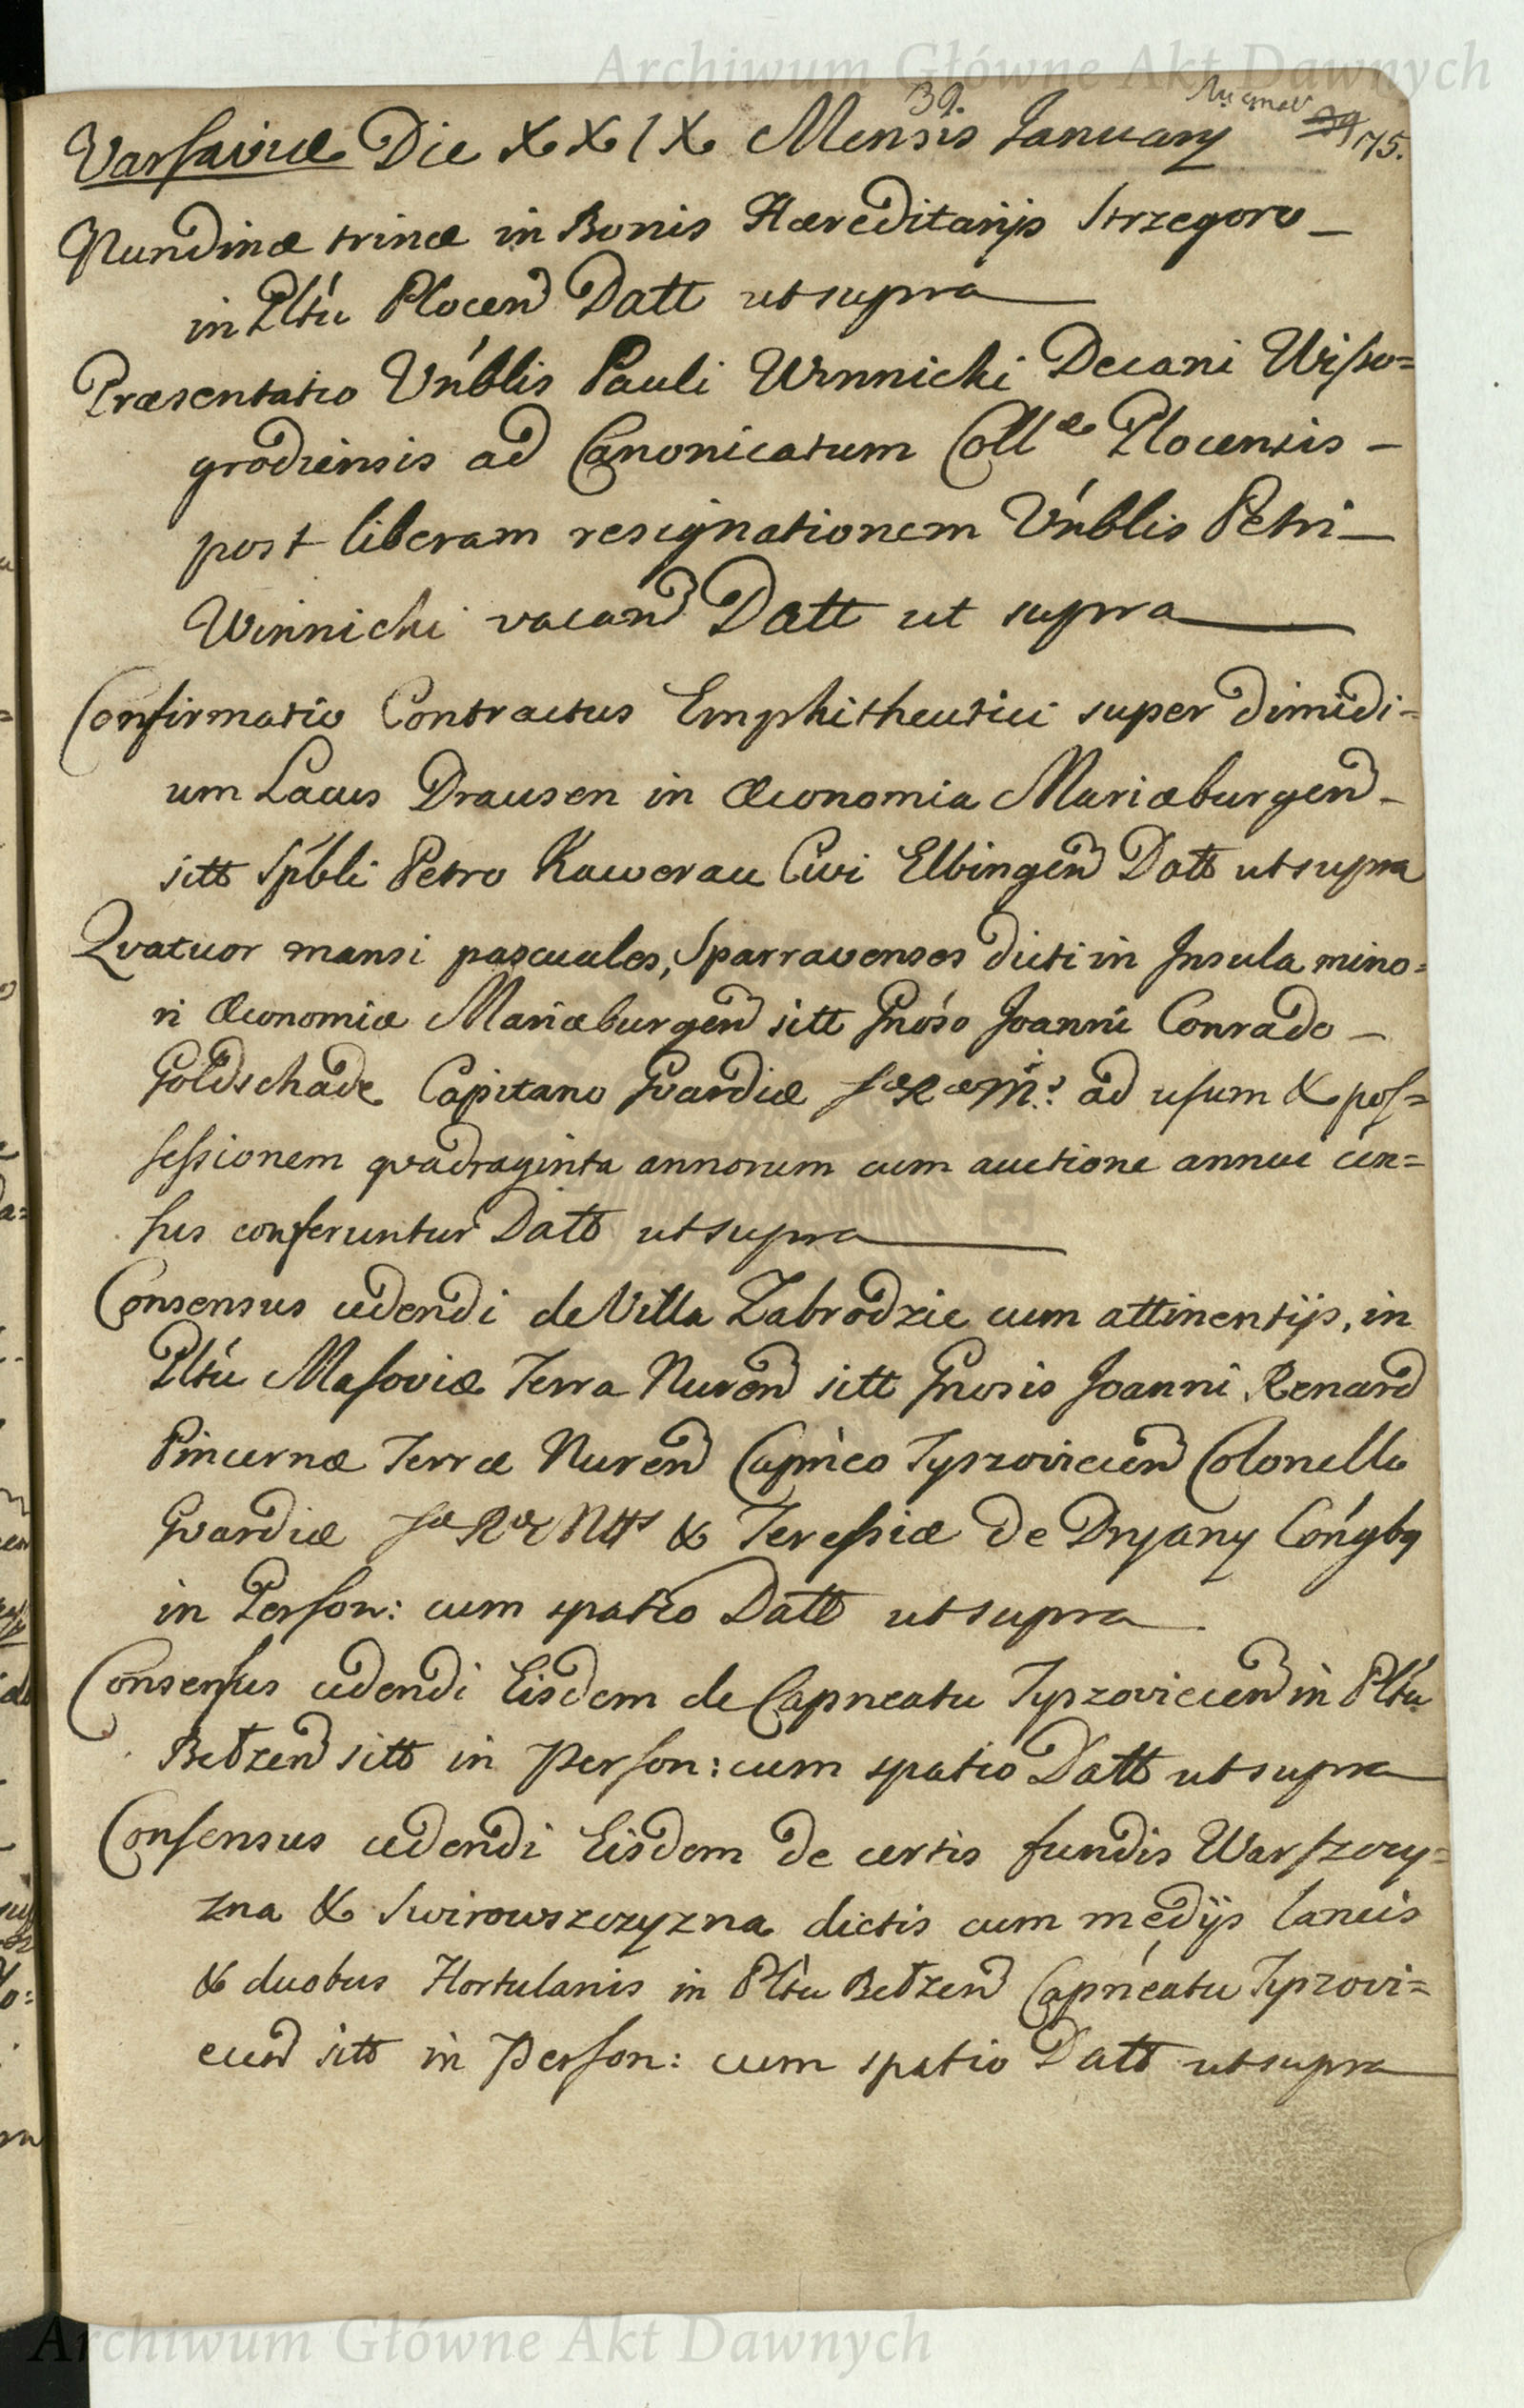 Archiwum Główne Akt Dawnych
39.
39 175.
Varsaviæ Die XXIX Mensis January
Nundinæ trinæ in Bonis Hæreditarijs Strzegowo –
in Pltú Plocen Datt ut supra
Præsentatio Vńblis Pauli Winnicki Decani Wisso=
grodiensis ad Canonicatum Collæ Plocensis –
post liberam resignationem Vńblis Petri –
Winnicki vacan Datt ut supra
Confirmatio Contractus Emphitheutici super dimidi=
um Lacus Drausen in Œconomia Mariæburgen –
sitt Spbli Petro Kawerau Civi Elbingen Datt ut supra
Qvatuor mansi pascuales, Sparravenses dicti in Insula mino=
ri Œconomiæ Mariæburgen sitt Gnóso Joanni Conrado –
Goldschade Capitano Gvardiæ SæRæMtis ad usum & pos=
sessionem qvadraginta annorum cum auctione annui cen=
sus conferuntur Datt ut supra
Consensus cedendi de Villa Zabrodzie cum attinentijs, in
Pltú Masoviæ Terra Nuren sitt Gnosis Joanni Renard
Pincernæ Terræ Nuren Capneo Tyszoviecen Colonello
Gvardiæ SæRæMttis & Teressiæ de Dryany Cońgbq
in Person: cum spatio Datt ut supra
Consensus cedendi Eisdem de Capneatu Tyszoviecen in Pltú
Bełzen sitt in Person: cum spatio Datt ut supra
Consensus cedendi Eisdem de certis fundis Warszczy=
zna & Swirowszczyzna dictis cum medijs laneis
& duobus Hortulanis in Pltu Bełzen Capneatu Tyszovi=
ecen sitt in Person: cum spatio Datt ut supra
Archiwum Główne Akt Dawnych